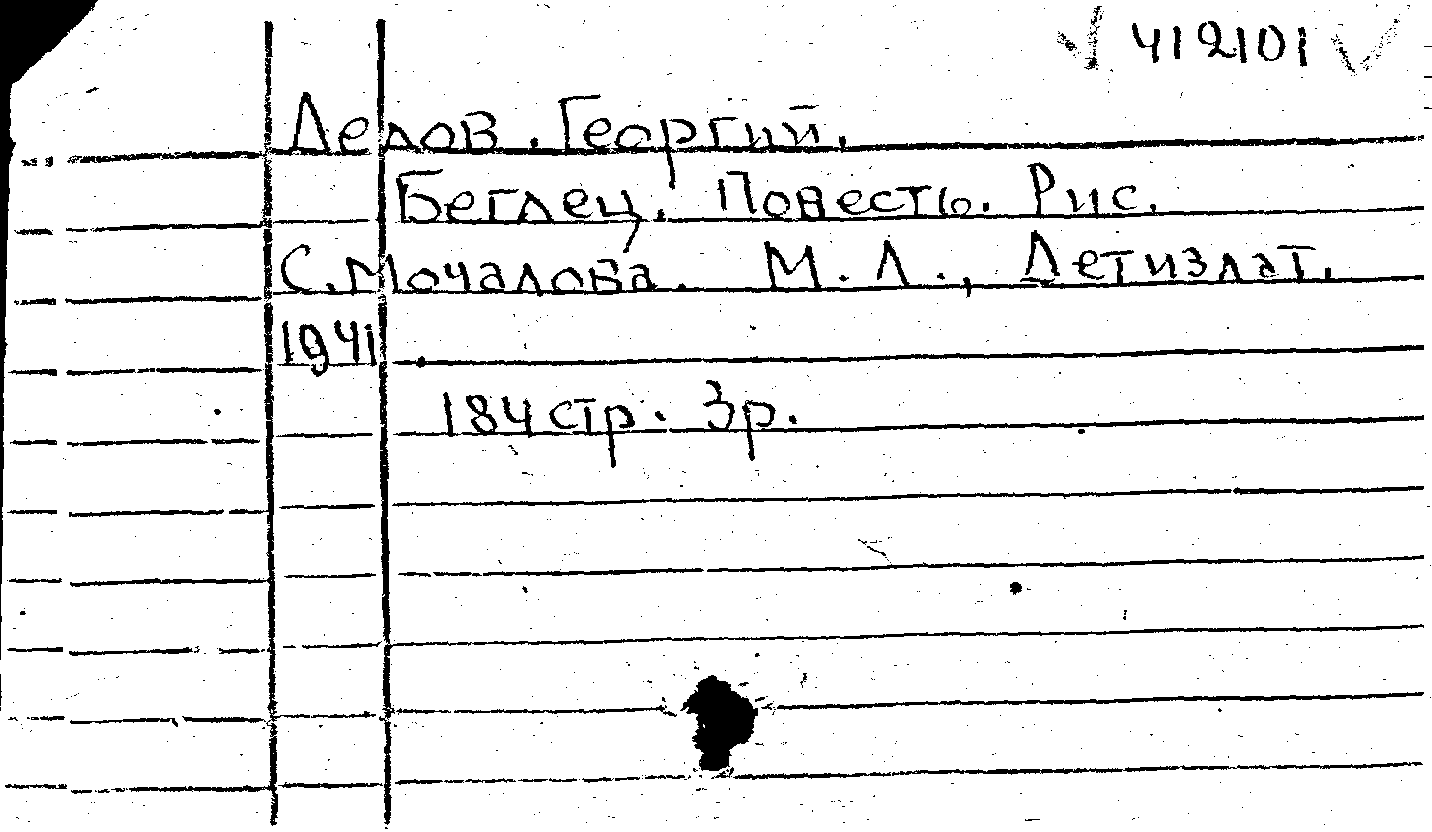 412101
Делов. Георгий.
Беглец. Повесть. Рис.
С. Мочалова. М. Л., Детиздат.
1941.
184 стр. 3р.